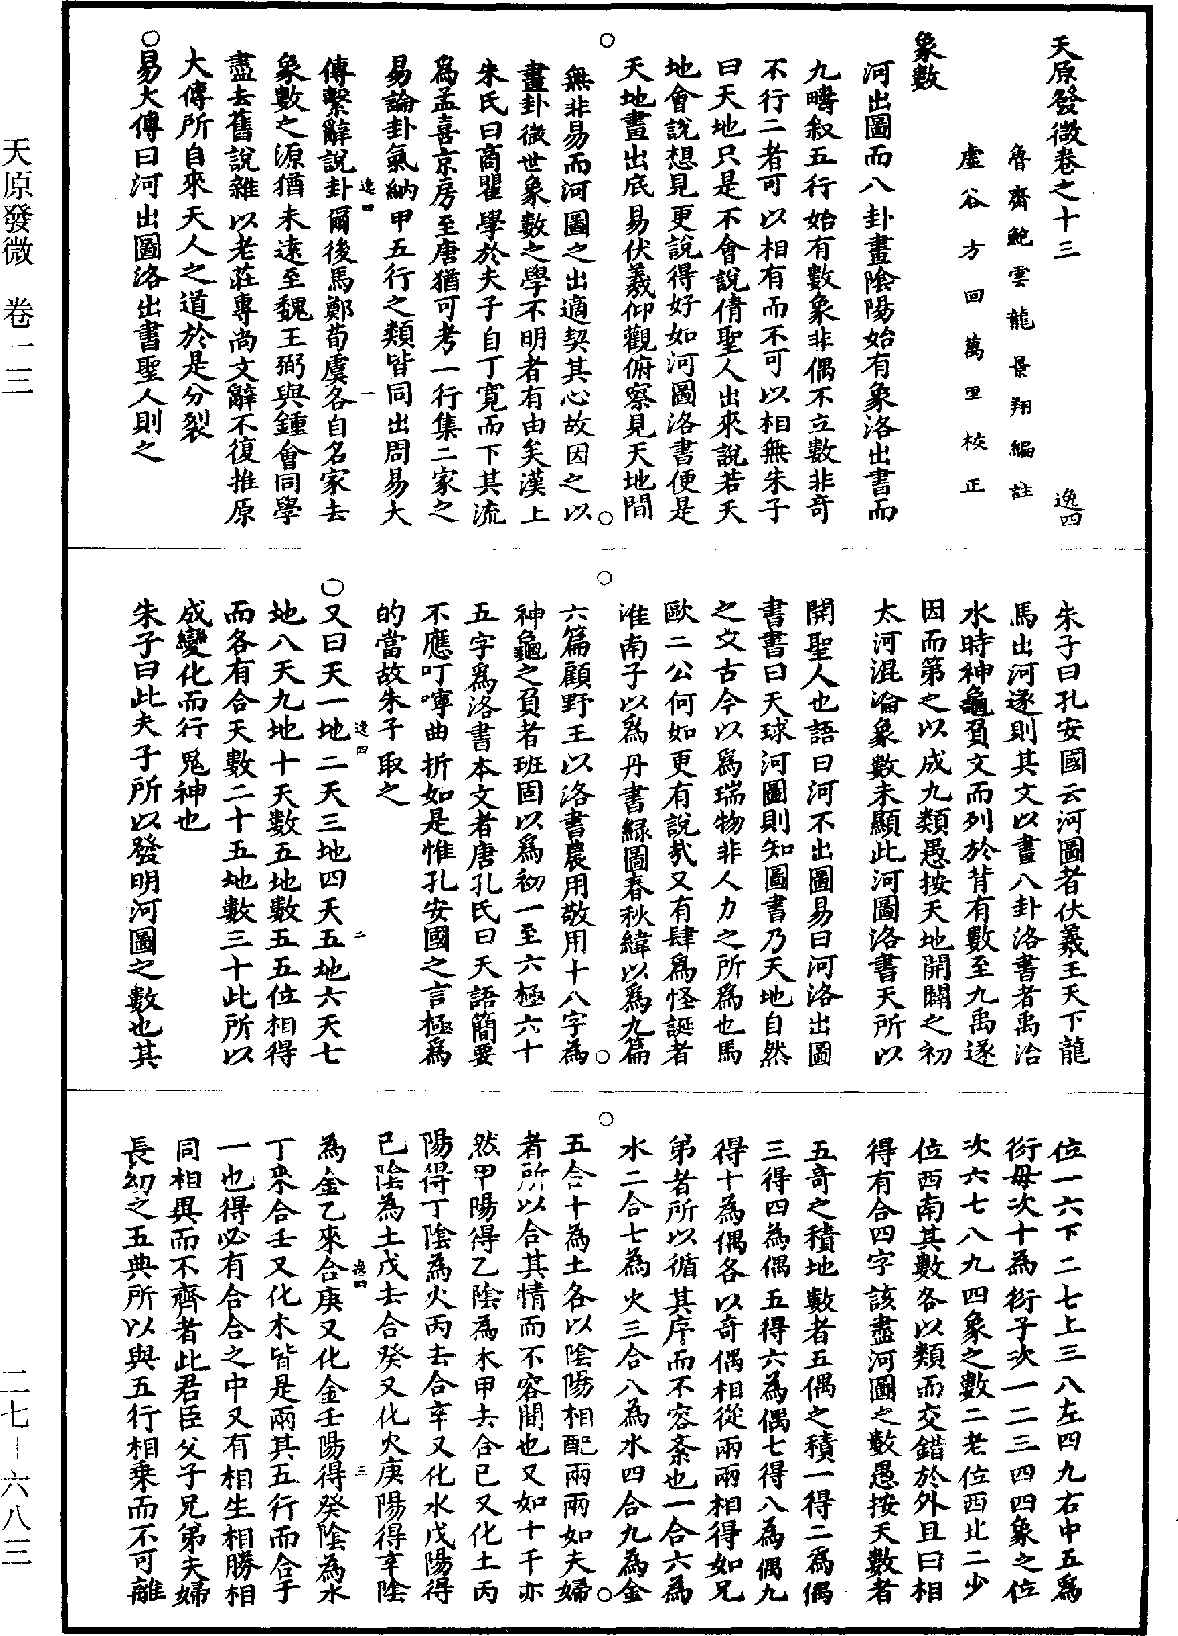 天原發微卷之十三　逸四
魯齋鮑雲龍景翔編註
虛谷方回萬里校正
象數
河出圖而八卦畫陰陽始有象洛出書而
九疇叙五行始有數象非偶不立數非奇
不行二者可以相有而不可以相無朱子
曰天地只是不會說倩聖人出來說若天
地會說想見更說得好如河圖洛書便是
天地畫出底易伏羲仰觀俯察見天地間
無非易而河圖之出適契其心故因之以
畫卦徵世象數之學不明者有由矣漢上
朱氏曰商瞿學於夫子自丁寬而下其流
為孟喜京房至唐猶可考一行集二家之
易論卦氣納甲五行之類皆同出周易大
逸四　一
傳繫辭說卦爾後馬鄭荀虞各自名家去
象數之源猶未遠至魏王弼與鍾會同學
盡去舊說雜以老莊專尚文辭不復推原
大傳所自來天人之道於是分裂
○易大傳曰河出圖洛出書聖人則之
朱子曰孔安國云河圖者伏羲王天下龍
馬出河遂則其文以畫八卦洛書者禹治
水時神龜負文而列於背有數至九禹遂
因而第之以成九類愚按天地開闢之初
太河混淪象數未顯此河圖洛書天所以
開聖人也語曰河不出圖易曰河洛出圖
書書曰天球河圖則知圖書乃天地自然
之文古今以為瑞物非人力之所為也馬
歐二公何如更有說㢤又有肆為怪誕者
淮南子以為丹書綠圖春秋緯以為九篇
六篇顧野王以洛書農用敬用十八字為
神龜之負者班固以為初一至六極六十
五字為洛書本文者唐孔氏曰天語簡要
不應叮嚀曲折如是惟孔安國之言極為
的當故朱子取之
逸四　二
○又曰天一地二天三地四天五地六天七
地八天九地十天數五地數五五位相得
而各有合天數二十五地數三十此所以
成變化而行鬼神也
朱子曰此夫子所以發明河圖之數也其
位一六下二七上三八左四九右中五為
衍母次十為衍子次一二三四四象之位
次六七八九四象之數二老位西北二少
位西南其數各以類而交錯於外且曰相
得有合四字該盡河圖之數愚按天數者
五奇之積地數者五偶之積一得二為偶
三得四為偶五得六為偶七得八為偶九
得十為偶各以奇偶相從兩兩相得如兄
弟者所以循其序而不容紊也一合六為
水二合七為火三合八為木四合九為金
五合十為土各以陰陽相配兩兩如夫婦
者所以合其情而不容間也又如十干亦
然甲陽得乙陰為木甲去合己又化土丙
陽得丁陰為火丙去合辛又化水戊陽得
己陰為土戊去合癸又化火庚陽得辛陰
逸四　三
為金乙來合庚又化金壬陽得癸陰為水
丁來合壬又化木皆是兩其五行而合于
一也得必有合合之中又有相生相勝相
同相與而不齊者此君臣父子兄弟夫婦
長幼之五典所以與五行相乘而不可離
天原發微　卷一三
二七－六八三